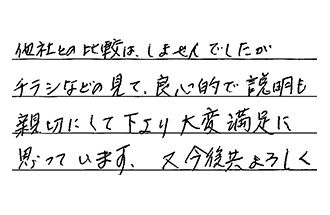 他社との比較は、しませんでしたが
チラシなどの見て、良心的で説明も
親切にくて下より大変満足に
思っています。 又今後共よろしく